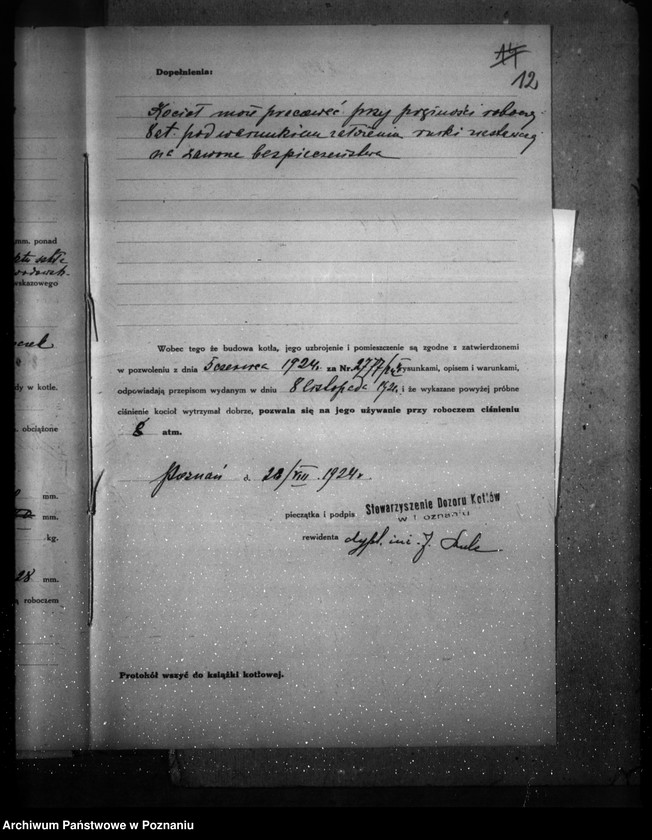 14
12
Dopełnienia:
Kocioł może pracować przy prężności roboczej
8 at. pod warunkiem założenia rurki
na zawone bezpieczeństwa
mm. ponad
wskazowego
dy w kotle.
obciążone
mm.
mm.
kg.
28 mm.
roboczem
Wobec tego że budowa kotła, jego uzbrojenie i pomieszczenie są zgodne z zatwierdzonemi
w pozwoleniu z dnia 5 czerwca 1924 r. za Nr. 2777/ rysunkami, opisem i warunkami,
odpowiadają przepisom wydanym w dniu 8 listopada 1921 i że wykazane powyżej próbne
ciśnienie kocioł wytrzymał dobrze, pozwala się na jego używanie przy roboczem ciśnieniu
8 atm.
Poznań d. 28/VIII 1924 r.
pieczątka i podpis Stowarzyszenie Dozoru Kotłów
w Poznaniu
rewidenta dypl. inż. J.
Protokół wszyć do książki kotłowej.
Archiwum Państwowe w Poznaniu